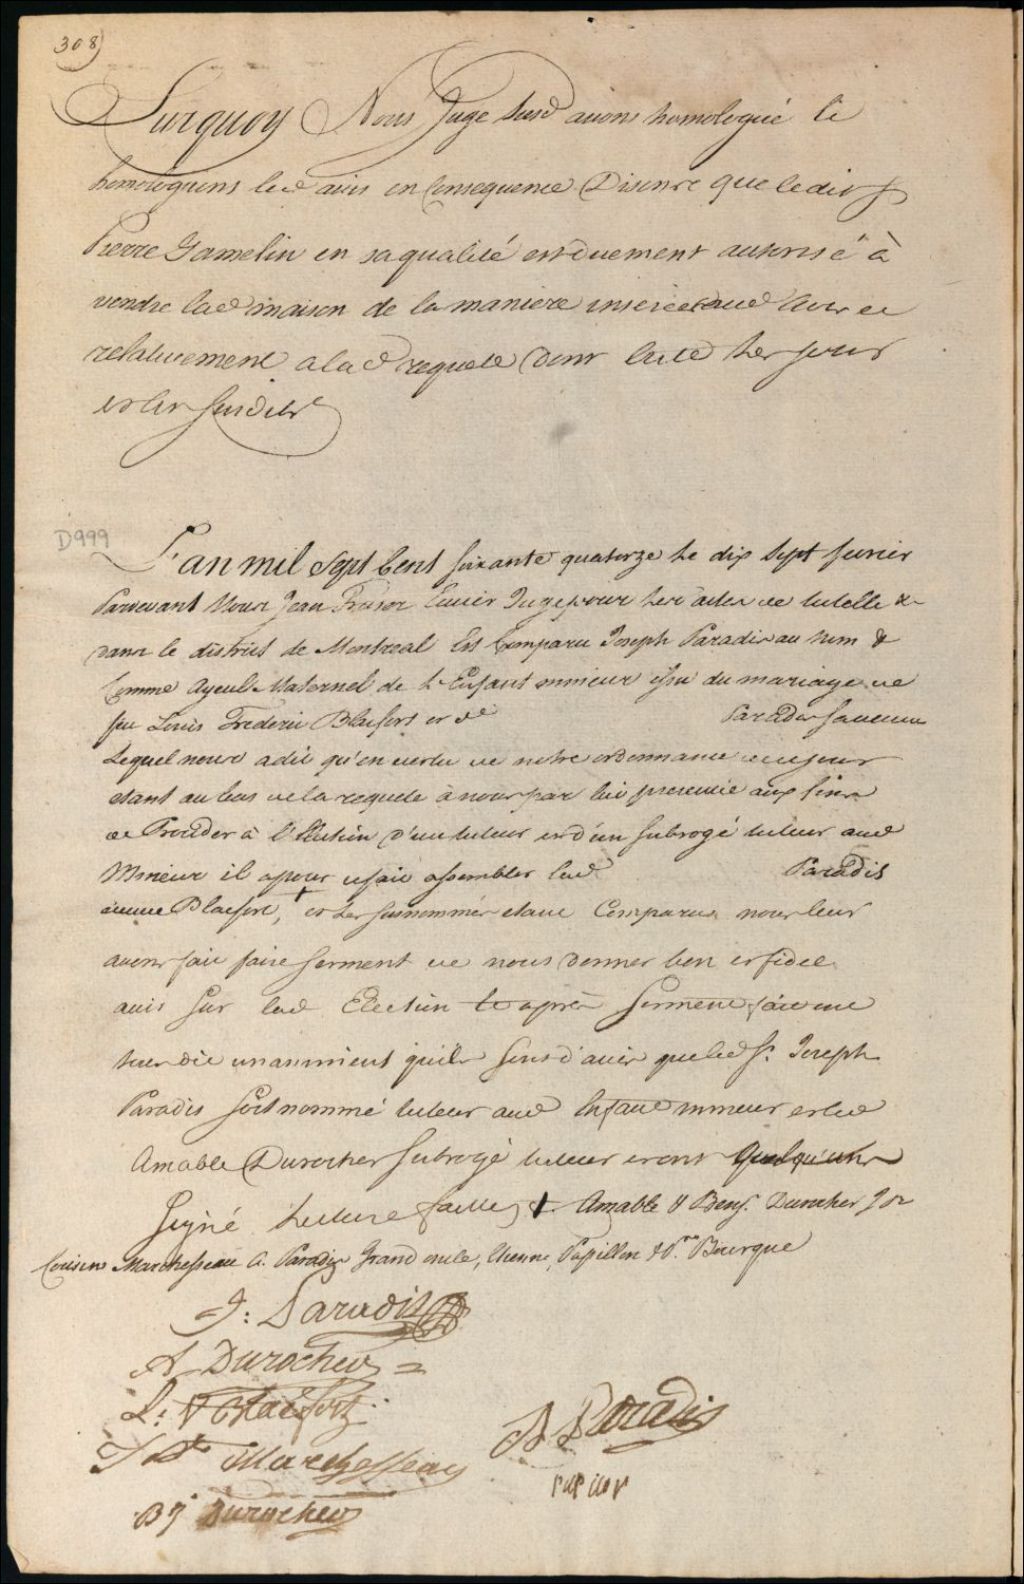 308)
Surquoy Nous Juge susd avons homologué &
homologuons led avis en Consequence Disons que ledit S
Pierre Gamelin en sa qualité est duement autorisé à
vendre lad maison de la maniere inserée aud avis et
relativement a lad requete dont acte les jour
et an susdits
D999
L'an mil sept Cent soixante quatorze le dix sept fevrier
Pardevant Nous Jean Fraser Ecuier Juge pour les actes de tutelle &
dans le district de Montreal Est Comparu Joseph Paradis au nom &
Comme Ayeul Maternel de l'Enfant mineur issu du mariage de
feu Louis Frederic Blaifort et de Paradis sa veuve
Lequel nous a dit qu'en vertu de notre ordonnance de ce jour
etant au bas de la requete à nous par lui presentée aux fins
de Proceder à l'Election d'un tuteur et d'un subrogé tuteur aud
Mineur il a pour ce fait assembler lad Paradis
veuve Blaifort, + et les susnommés etant Comparus nous leur
avons fait faire serment de nous donner bon et fidel
avis sur lad Election le après serment fait ont
tous dit unanimement quils sont d'avis que led Sr. Joseph
Paradis soit nommé tuteur aud Enfant mineur et led
Amable Durocher subrogé tuteur et ont quelqu'uns
signé lecture faite, +. Amable & Benj. Durocher
Cousins Marchesseau A. Paradis Grand oncle, Etienne Papillon & Bourgue
J: Paradis
A Durocher
L: V Blaifort
J Bte Marchesseau
A Paradis
papilon
Bj Durocher